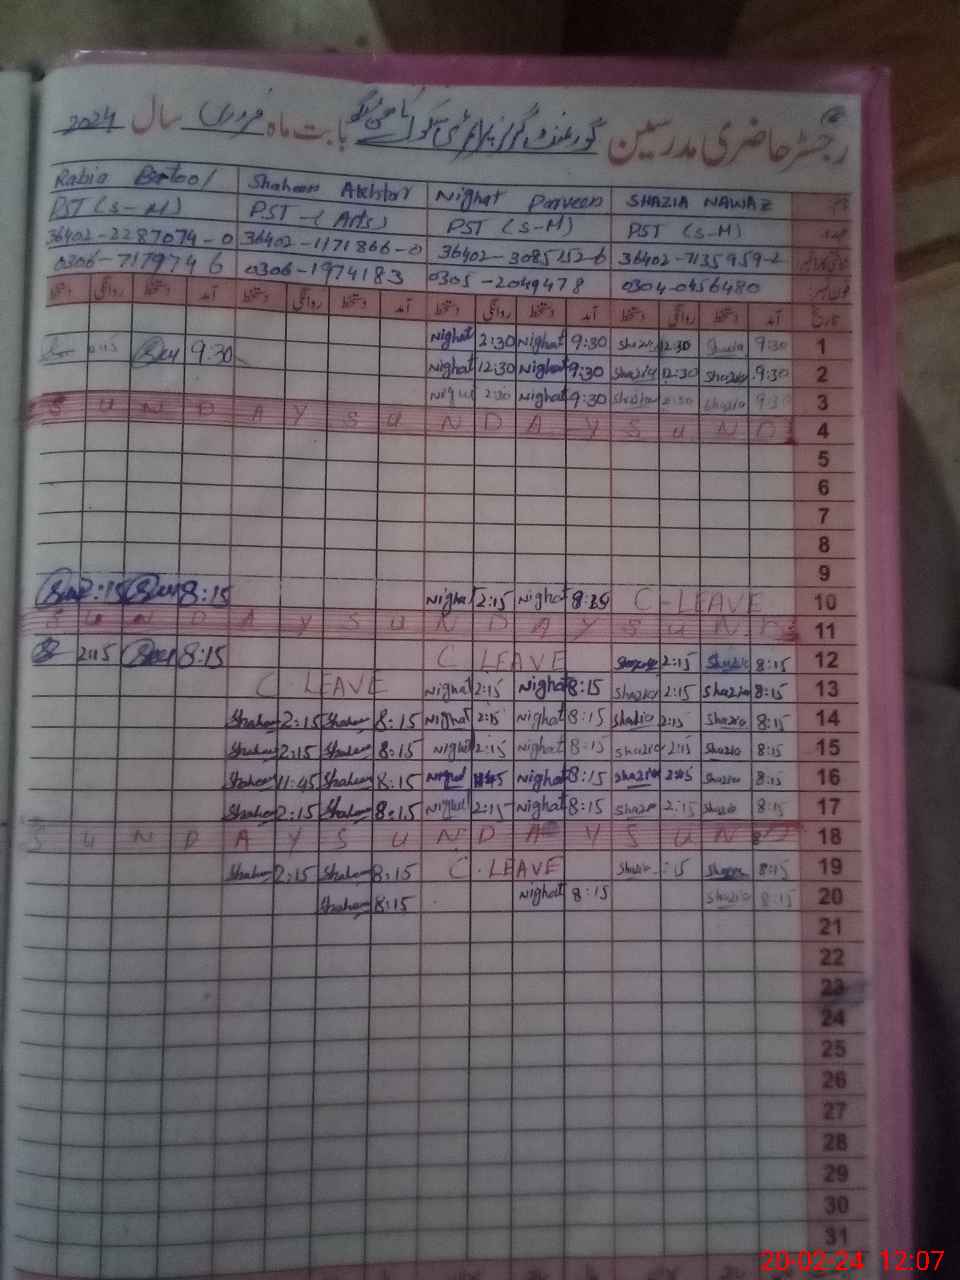 رجسٹر حاضری مدرسین گورنمنٹ گرلز پرائمری سکول بابت ماہ فروری سال 2024
Rabia Batool Shaheen Akhtar Nighat Parveen SHAZIA NAWAZ نام
PST (S-M) PST-(Arts) PST (S-M) PST (S-M) عہدہ
36402-2287074-0 36402-1171866-0 36402-3085252-6 36402-7135959-2
0306-7179746 0306-1974183 0305-2049478 0304-0456480
دستخط روانگی دستخط آمد دستخط روانگی دستخط آمد دستخط روانگی دستخط آمد دستخط روانگی دستخط آمد تاریخ
9:30 Nighat 2:30 Nighat 9:30 Shazia 12:30 Shazia 9:30 1
Nighat 12:30 Nighat 9:30 Shazia 12:30 Shazia 9:30 2
Nighat 2:30 Nighat 9:30 Shazia 2:30 Shazia 9:30 3
S U N D A Y S U N D A Y S U N D 4
5
6
7
8
9
2:15 8:15 Nighat 2:15 Nighat 8:15 C-LEAVE 10
S U N D A Y S U N D A Y S U N D 11
2:15 8:15 C.LEAVE Shazia 2:15 Shazia 8:15 12
C.LEAVE Nighat 2:15 Nighat 8:15 Shazia 2:15 Shazia 8:15 13
Shaheen 2:15 Shaheen 8:15 Nighat 2:15 Nighat 8:15 Shazia 2:15 Shazia 8:15 14
Shaheen 2:15 Shaheen 8:15 Nighat 2:15 Nighat 8:15 Shazia 2:15 Shazia 8:15 15
Shaheen 11:45 Shaheen 8:15 Nighat 11:45 Nighat 8:15 Shazia Shazia 8:15 16
Shaheen 2:15 Shaheen 8:15 Nighat 2:15 Nighat 8:15 Shazia 2:15 Shazia 8:15 17
S U N D A Y S U N D A Y S U N 18
Shaheen 2:15 Shaheen 8:15 C.LEAVE Shazia :15 Shazia 8:15 19
Shaheen 8:15 Nighat 8:15 Shazia 8:15 20
21
22
23
24
25
26
27
28
29
30
31
20-02-24 12:07